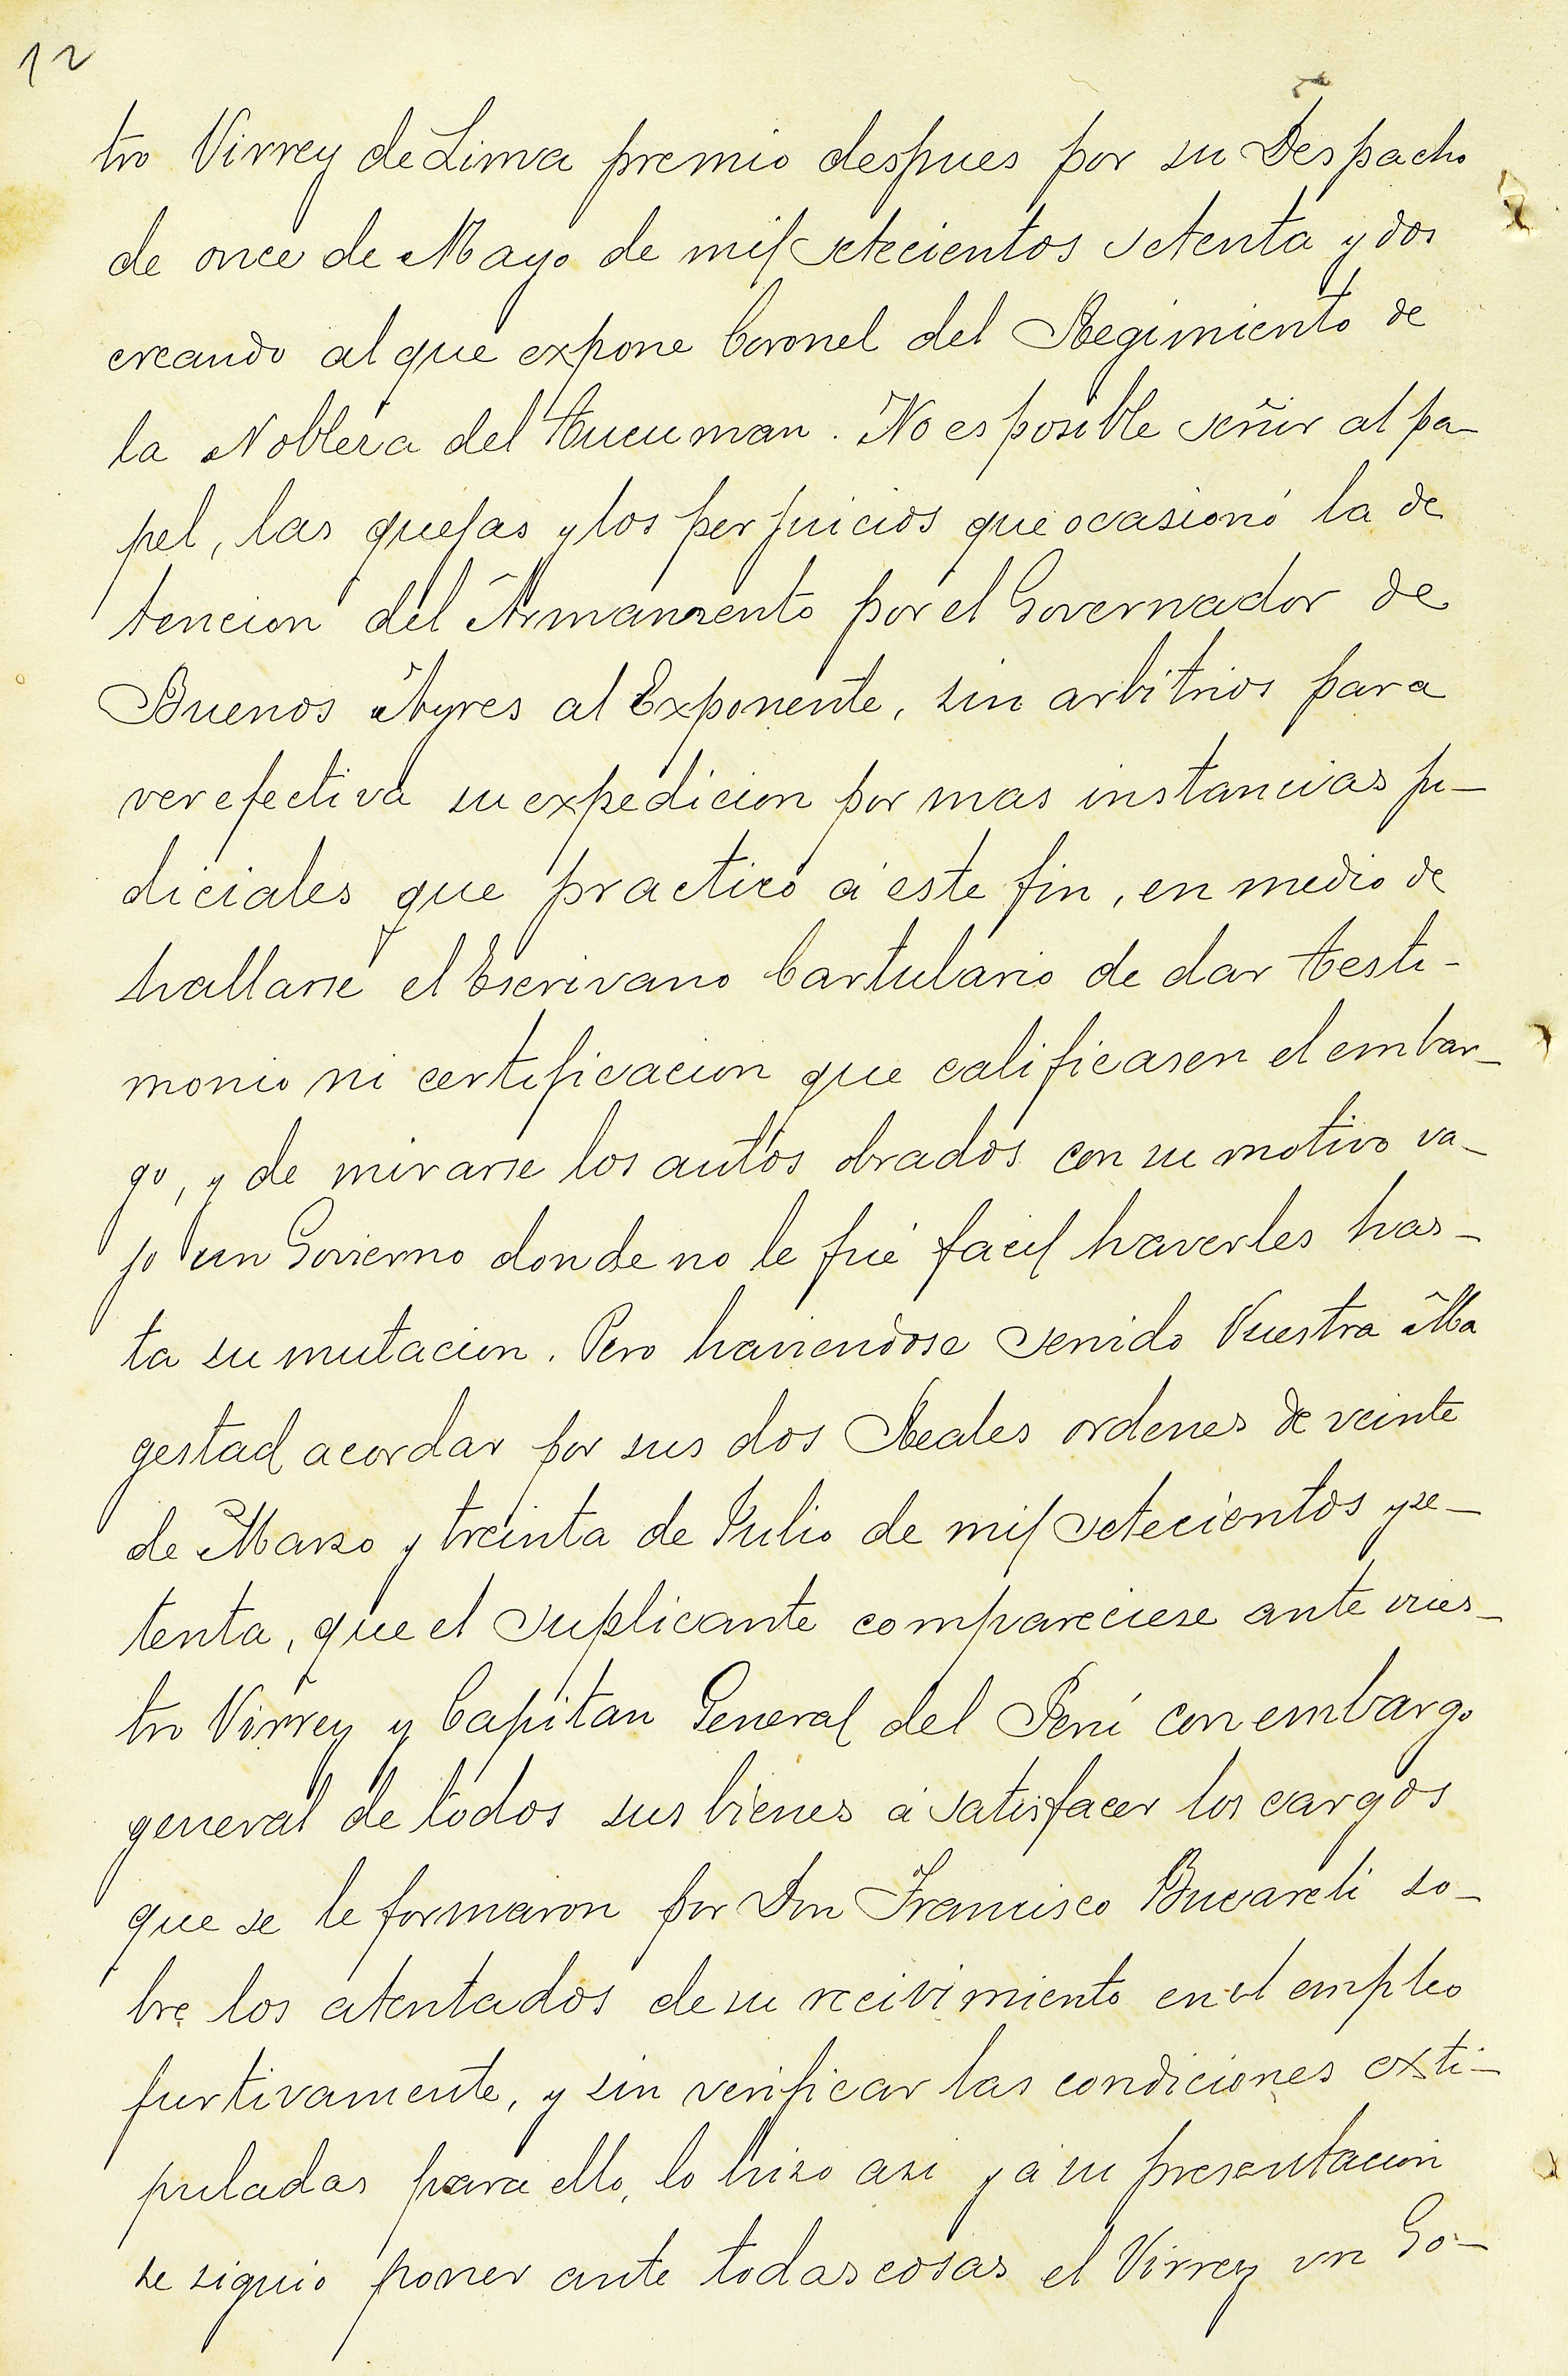 12
tro Virrey de Lima premio despues por su Despacho
de once de Mayo de mil setecientos setenta y dos
creando al que expone Coronel del Regimiento de
la Nobleza del Tucuman. No es posible señir al pa-
pel, las quejas y los perjuicios que ocasionó la de
tencion del Armamento por el Governador de
Buenos Ayres al Exponente, sin arbitrios para
ver efectiva su expedicion por mas instancias ju-
diciales que practicó á este fin, en medio de
hallarse el Escrivano Cartulario de dar testi-
monio ni certificacion que calificasen el embar-
go, y de mirarse los autos obrados con su motivo va-
jo un Govierno donde no le fué facil haverles has-
ta su mutacion. Pero haviendose servido Vuestra Ma
gestad acordar por sus dos Reales ordenes de veinte
de Marzo y treinta de Julio de mil setecientos y se-
tenta, que el suplicante compareciese ante vues-
tro Virrey y Capitan General del Perú con embargo
general de todos sus bienes á satisfacer los cargos
que se le formaron por Don Francisco Bucareli so-
bre los atentados de su recivimiento en el empleo
furtivamente, y sin verificar las condiciones exti-
puladas para ello, lo hizo asi y á su presentacion
se siguió poner ante todas cosas el Virrey un Go-